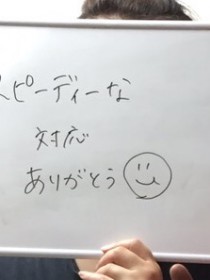 スピーディーな
対応
ありがとう